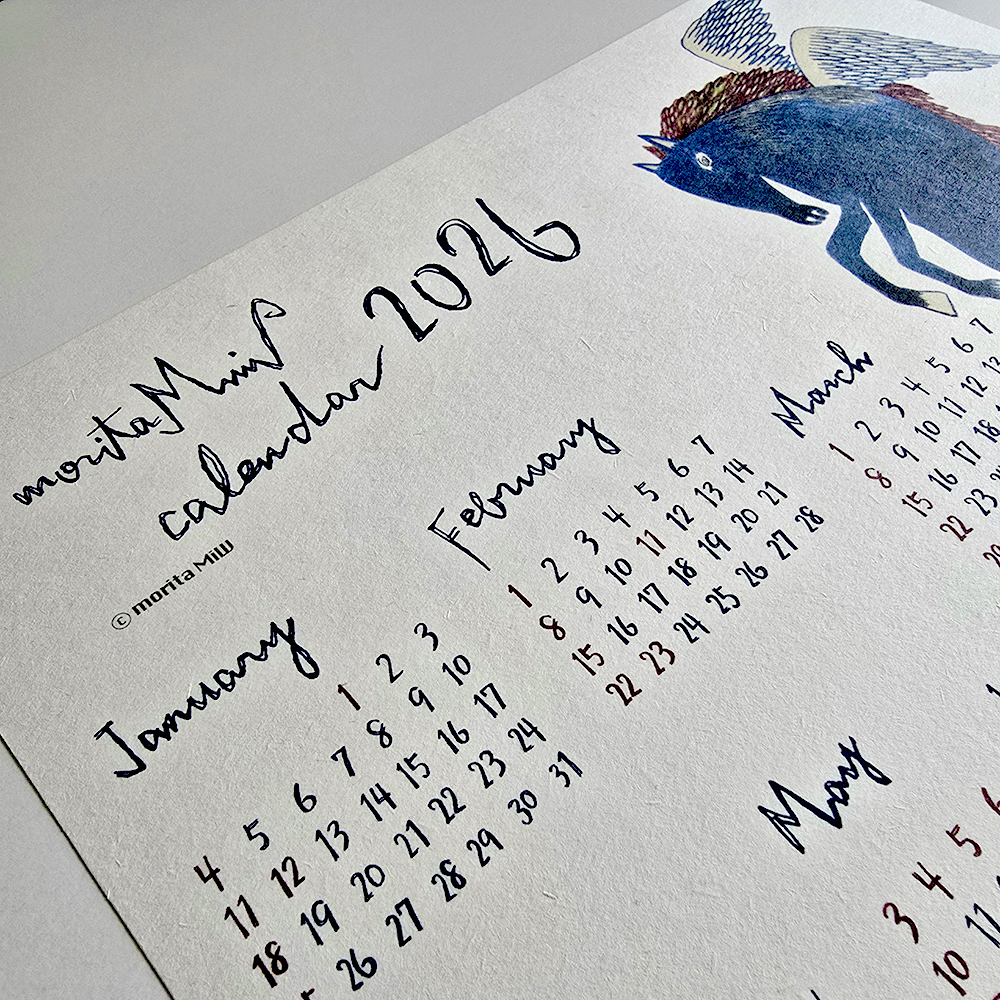 moritaMiW
calendar 2026
© morita MiW
January
1 2 3
4 5 6 7 8 9 10
11 12 13 14 15 16 17
18 19 20 21 22 23 24
26 27 28 29 30 31
February
1 2 3 4 5 6 7
8 9 10 11 12 13 14
15 16 17 18 19 20 21
22 23 24 25 26 27 28
March
1 2 3 4 5 6 7
8 9 10 11 12 13
15 16 17 18
22 23
May
3 4 5 6
10 11